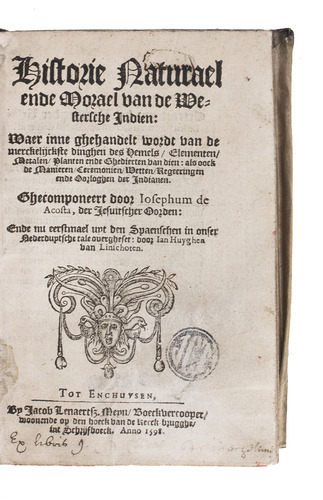 Historie Naturael
ende Morael van de We-
stersche Indien:
Waer inne ghehandelt wordt van de
merckelijckste dinghen des Hemels / Elementen/
Metalen/ Planten ende Ghedierten van dien: als oock
de Manieren/ Ceremonien/ Wetten/ Regeeringen
ende Oorloghen der Indianen.
Ghecomponeert door Iosephum de
Acosta, der Jesuitscher Oorden:
Ende nu eerstmael uyt den Spaenschen in onser
Nederduytsche tale overgheset: door Ian Huyghen
van Linschoten.
TOT ENCHUYSEN,
By Jacob Lenaertsz. Meyn/ Boeckvercooper/
woonende op den hoeck van de kerck brugghe/
int Schrijfboeck. Anno 1598.
Ex Libris